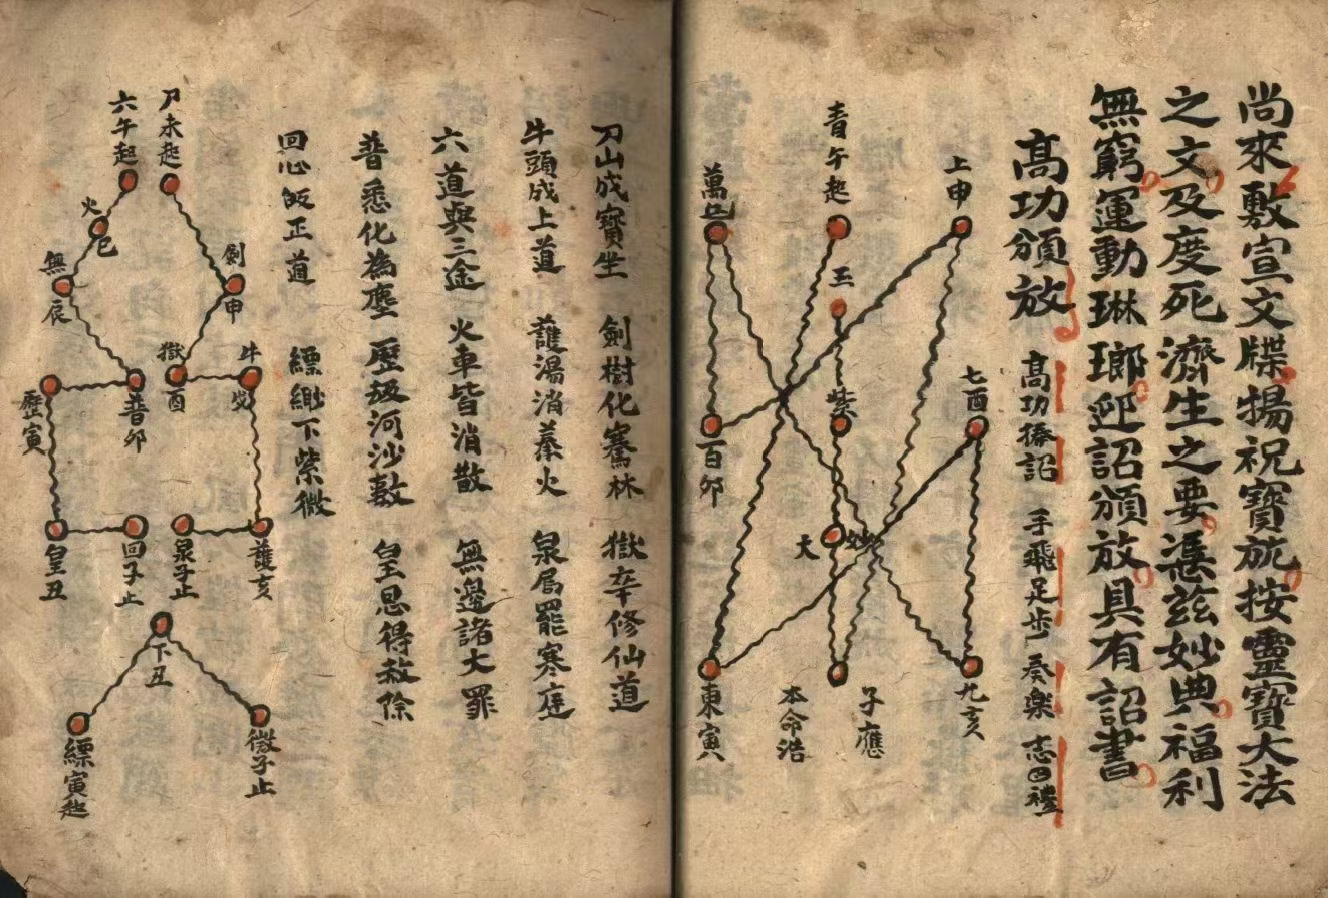 尚來敷宣文牒揚祝寶旂按靈寶大法
之文及度死濟生之要慿茲妙典福利
無窮運動琳瑯迎詔頒放具有詔書
高功頒放
高功捺詔 手飛足步 奏樂 志曰禮
上申
七酉
九亥
青午起
玉
紫
大
妙
子應
本命浩
萬巳
百卯
東寅
刀山成寶坐 劍樹化騫林 獄辛修仙道
牛頭成上道 護湯消蓁火 泉局罷寒庭
六道與三途 火車皆消散 無邊諸大罪
普悉化為塵 歷劫河沙數 皇恩得赦除
回心皈正道 縹緲下紫微
刀未起
六午起
火巳
無辰
劍申
獄酉
牛戌
普卯
歷寅
皇丑
回子止
泉子止
護亥
下丑
縹寅起
微子止